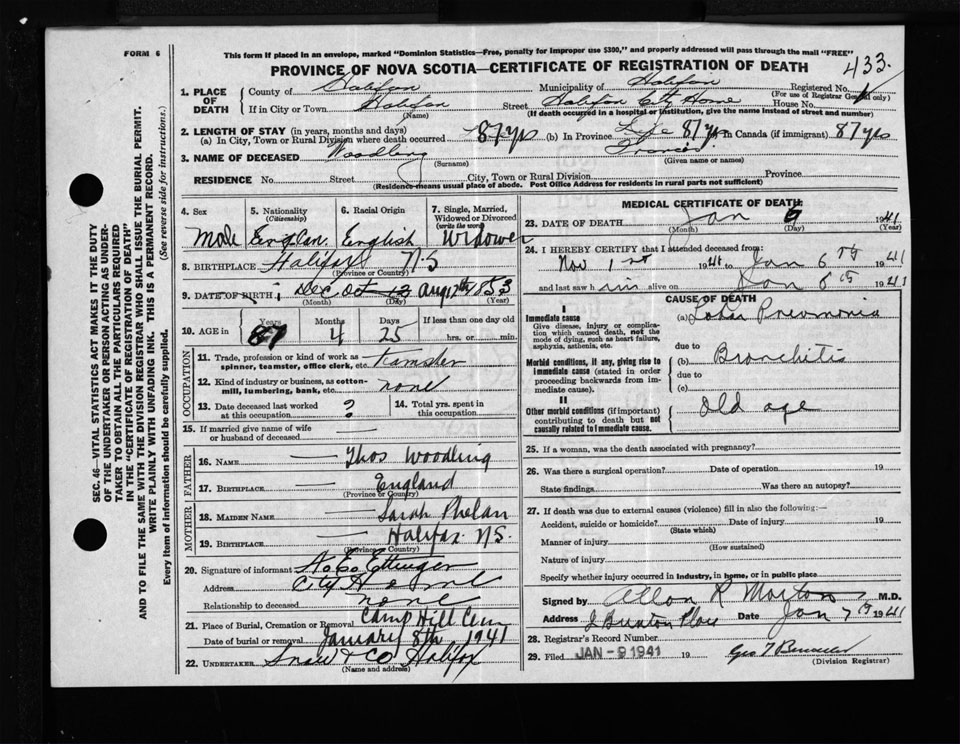 FORM 6
This form if placed in an envelope, marked "Dominion Statistics—Free, penalty for improper use $300," and properly addressed will pass through the mail "FREE"
PROVINCE OF NOVA SCOTIA—CERTIFICATE OF REGISTRATION OF DEATH 433.
SEC. 46—VITAL STATISTICS ACT MAKES IT THE DUTY OF THE UNDERTAKER OR PERSON ACTING AS UNDERTAKER TO OBTAIN ALL THE PARTICULARS REQUIRED IN THE "CERTIFICATE OF REGISTRATION OF DEATH" AND TO FILE THE SAME WITH THE DIVISION REGISTRAR WHO SHALL ISSUE THE BURIAL PERMIT.
WRITE PLAINLY WITH UNFADING INK. THIS IS A PERMANENT RECORD.
Every item of information should be carefully supplied. (See reverse side for instructions.)
1. PLACE OF DEATH County of Halifax Municipality of Halifax Registered No.
(For use of Registrar General only)
If in City or Town Halifax Street Halifax City Home House No.
(Name) (If death occurred in a hospital or institution, give the name instead of street and number)
2. LENGTH OF STAY (in years, months and days)
(a) In City, Town or Rural Division where death occurred 87 yrs (b) In Province Life 87 yrs In Canada (if immigrant) 87 yrs
3. NAME OF DECEASED Woodling Francis
(Surname) (Given name or names)
RESIDENCE No. Street City, Town or Rural Division Province
(Residence means usual place of abode. Post Office Address for residents in rural parts not sufficient)
4. Sex Male
5. Nationality (Citizenship) Englan.
6. Racial Origin English
7. Single, Married, Widowed or Divorced (write the word) Widower
8. BIRTHPLACE Halifax N.S
(Province or Country)
9. DATE OF BIRTH Dec Oct 12 Aug 12th 1853
(Month) (Day) (Year)
10. AGE in Years 87 Months 4 Days 25 If less than one day old hrs. or min.
OCCUPATION
11. Trade, profession or kind of work as spinner, teamster, office clerk, etc. Teamster
12. Kind of industry or business, as cotton-mill, lumbering, bank, etc. none
13. Date deceased last worked at this occupation ?
14. Total yrs. spent in this occupation
15. If married give name of wife or husband of deceased —
FATHER
16. NAME — Thos Woodling
17. BIRTHPLACE — England
(Province or Country)
MOTHER
18. MAIDEN NAME — Sarah Phelan
19. BIRTHPLACE — Halifax. N.S.
(Province or Country)
20. Signature of informant Ettinger
Address City Home
Relationship to deceased none
21. Place of Burial, Cremation or Removal Camp Hill Cem
Date of burial or removal January 8th 1941
22. UNDERTAKER Snow & Co Halifax
(Name and address)
MEDICAL CERTIFICATE OF DEATH
23. DATE OF DEATH Jan 6 1941
(Month) (Day) (Year)
24. I HEREBY CERTIFY that I attended deceased from:
Nov 1st 194 to Jan 6th 1941
and last saw him alive on Jan 1941
CAUSE OF DEATH
I
Immediate cause
Give disease, injury or complication which caused death, not the mode of dying, such as heart failure, asphyxia, asthenia, etc.
(a) Lobar Pneumonia
due to
Morbid conditions, if any, giving rise to immediate cause (stated in order proceeding backwards from immediate cause).
(b) Bronchitis
due to
(c)
II
Other morbid conditions (if important) contributing to death but not causally related to immediate cause.
Old age
25. If a woman, was the death associated with pregnancy?
26. Was there a surgical operation? Date of operation 19
State findings Was there an autopsy?
27. If death was due to external causes (violence) fill in also the following:—
Accident, suicide or homicide? Date of injury 19
(State which)
Manner of injury
(How sustained)
Nature of injury
Specify whether injury occurred in industry, in home, or in public place
Signed by Allan R Morton M.D.
Address Date Jan 7th 1941
28. Registrar's Record Number
29. Filed JAN -9 1941 19
(Division Registrar)